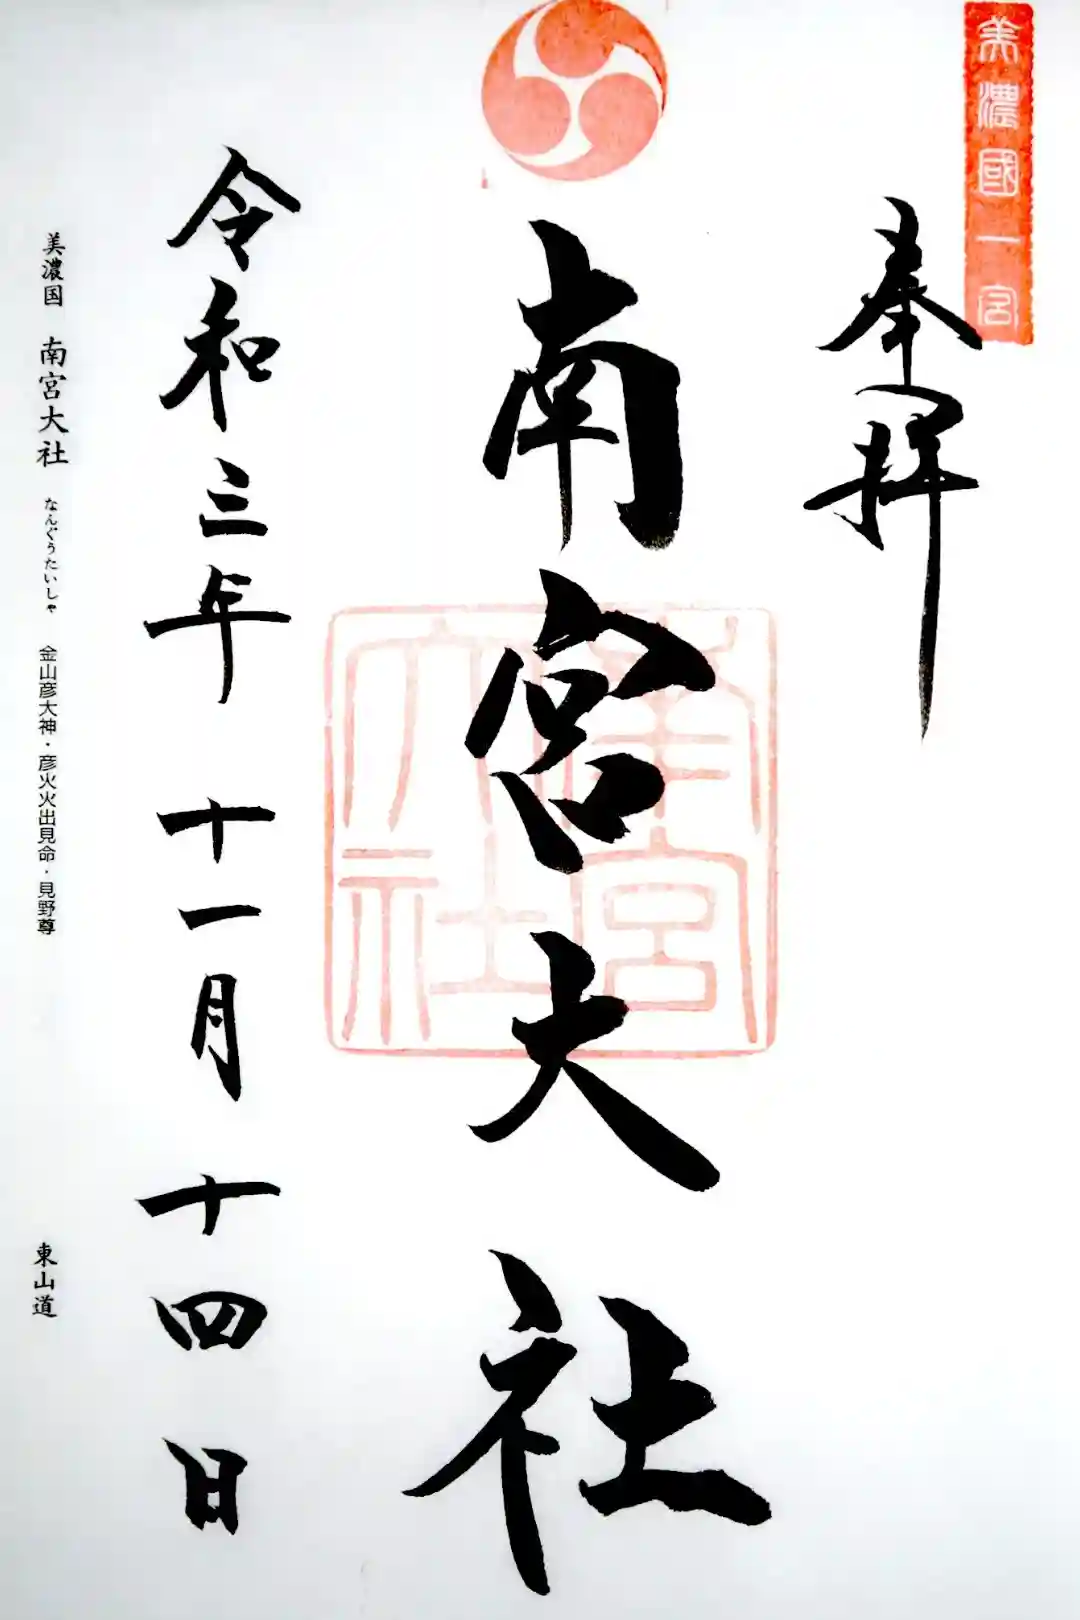 美濃國一宮
奉拝
南宮大社
南宮大社
令和三年 十一月 十四日
美濃国 南宮大社 なんぐうたいしゃ 金山彦大神・彦火火出見命・見野尊 東山道